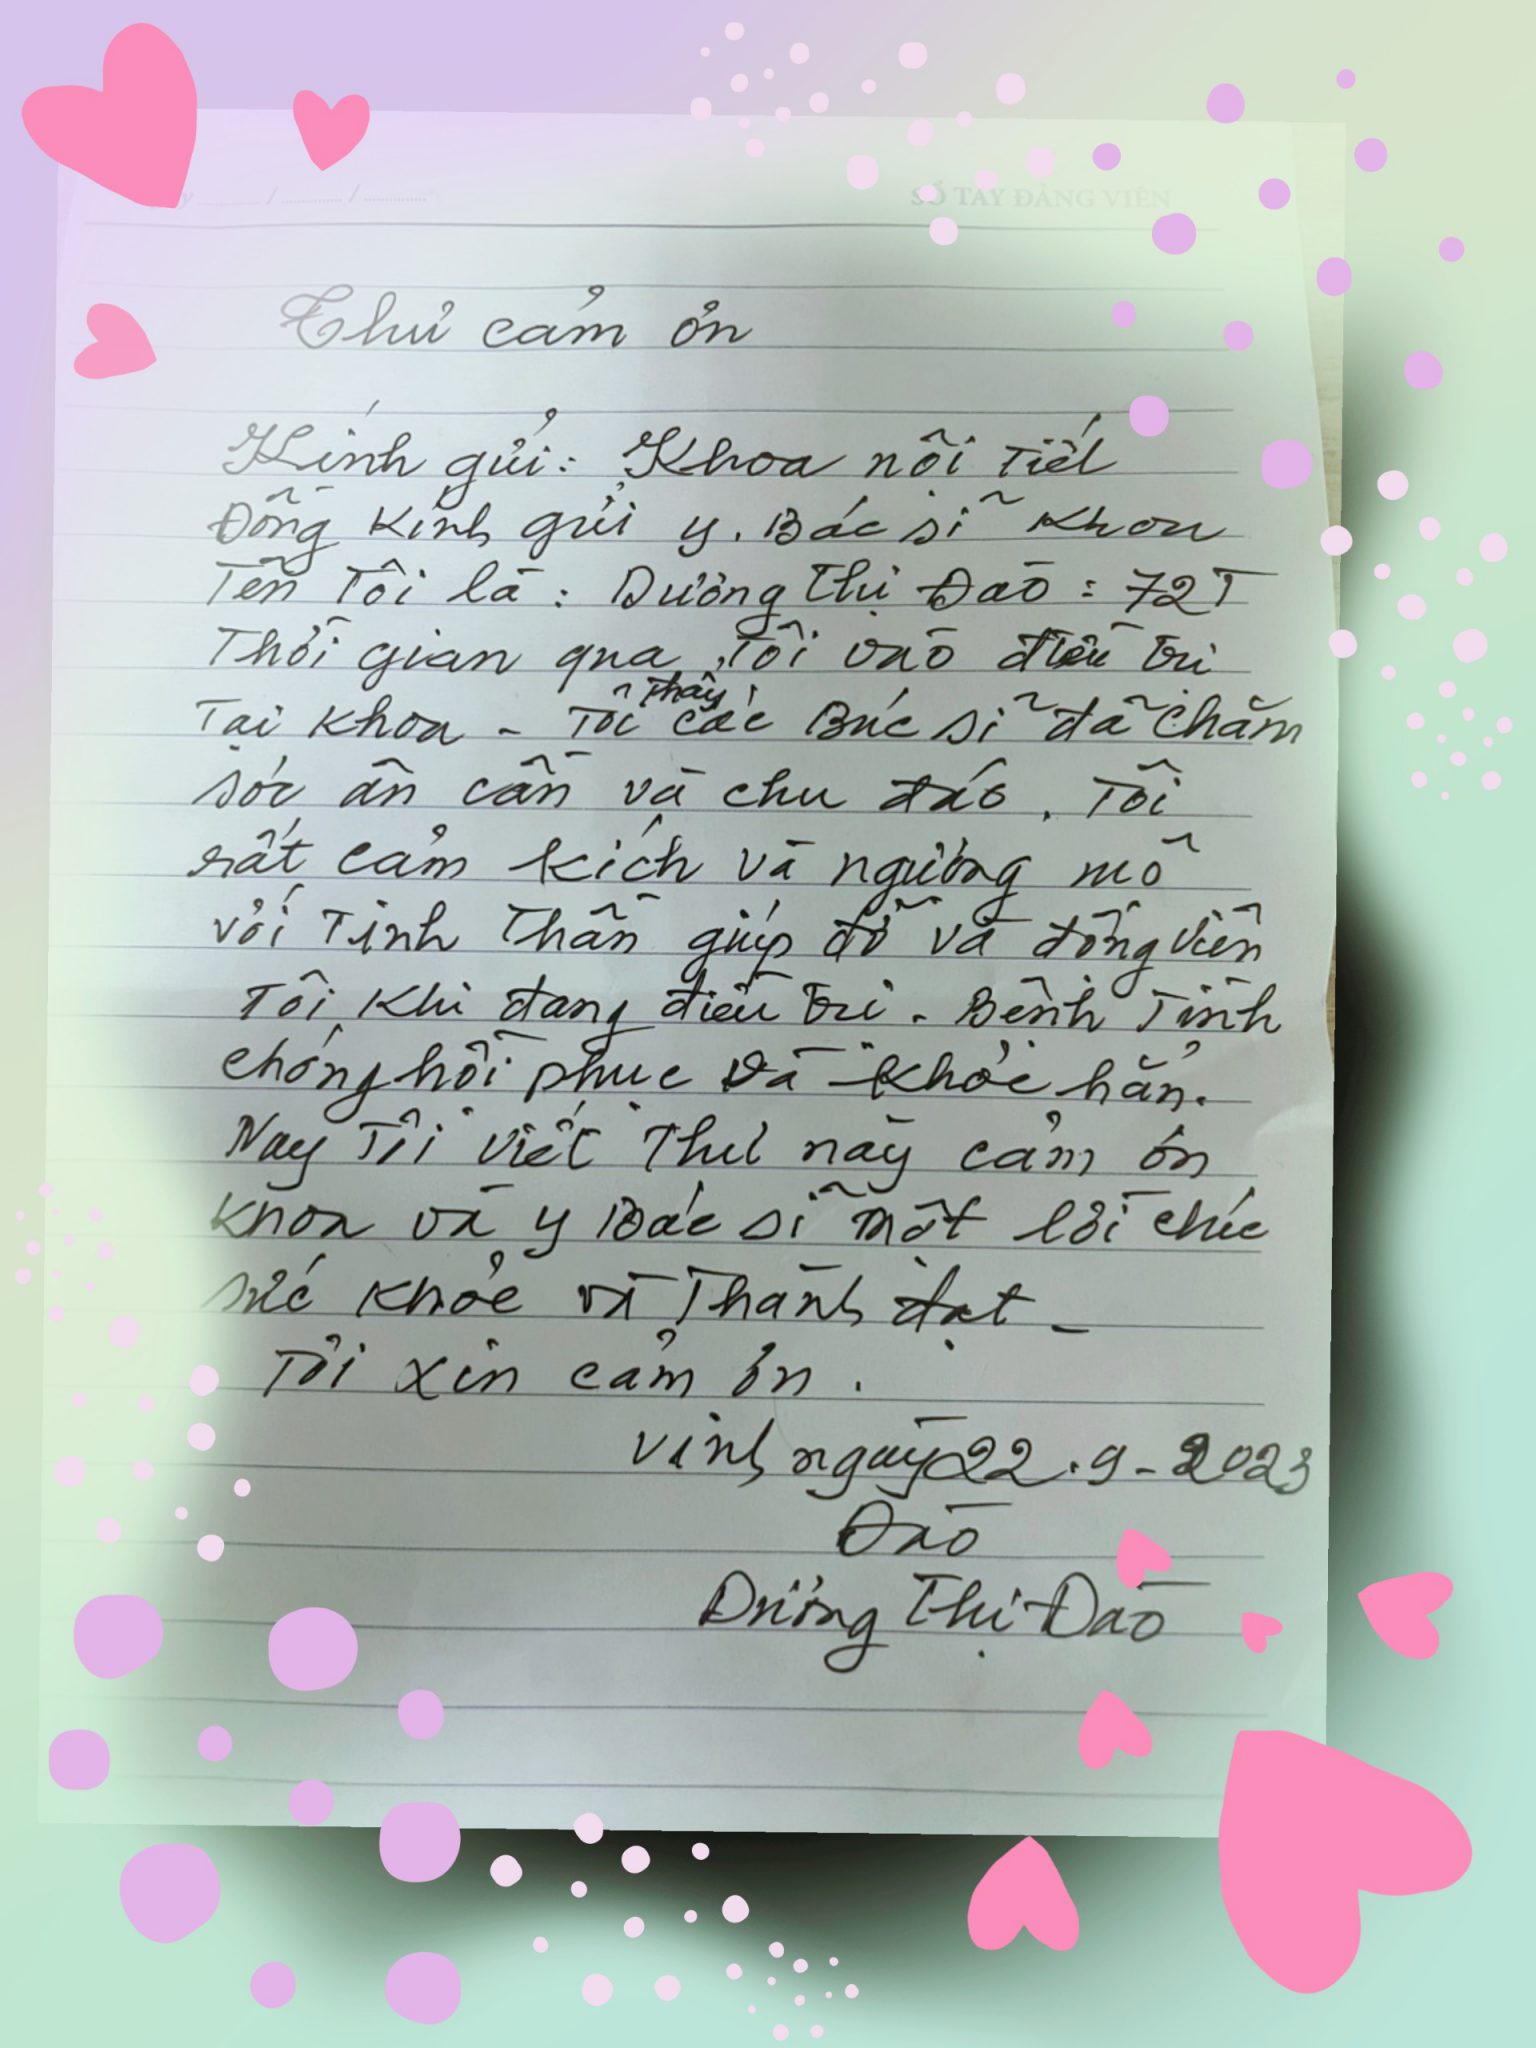 SỔ TAY ĐẢNG VIÊN
Thư cảm ơn
Kính gửi: Khoa nội tiết
Đồng kính gửi y. Bác sĩ khoa
Tên Tôi là: Dương Thị Đào: 72T
Thời gian qua, Tôi vào điều trị
Tại khoa - Tôi thấy các Bác sĩ đã chăm
sóc ân cần và chu đáo. Tôi
rất cảm kích và ngưỡng mộ
với Tinh Thần giúp đỡ và động viên
Tôi khi đang điều trị. Bệnh Tình
chóng hồi phục và khỏe hẳn.
Nay Tôi viết Thư này cảm ơn
khoa và y Bác sĩ một lời chúc
sức khỏe và Thành đạt -
Tôi xin cảm ơn.
Vinh ngày 22.9-2023
Đào
Dương Thị Đào